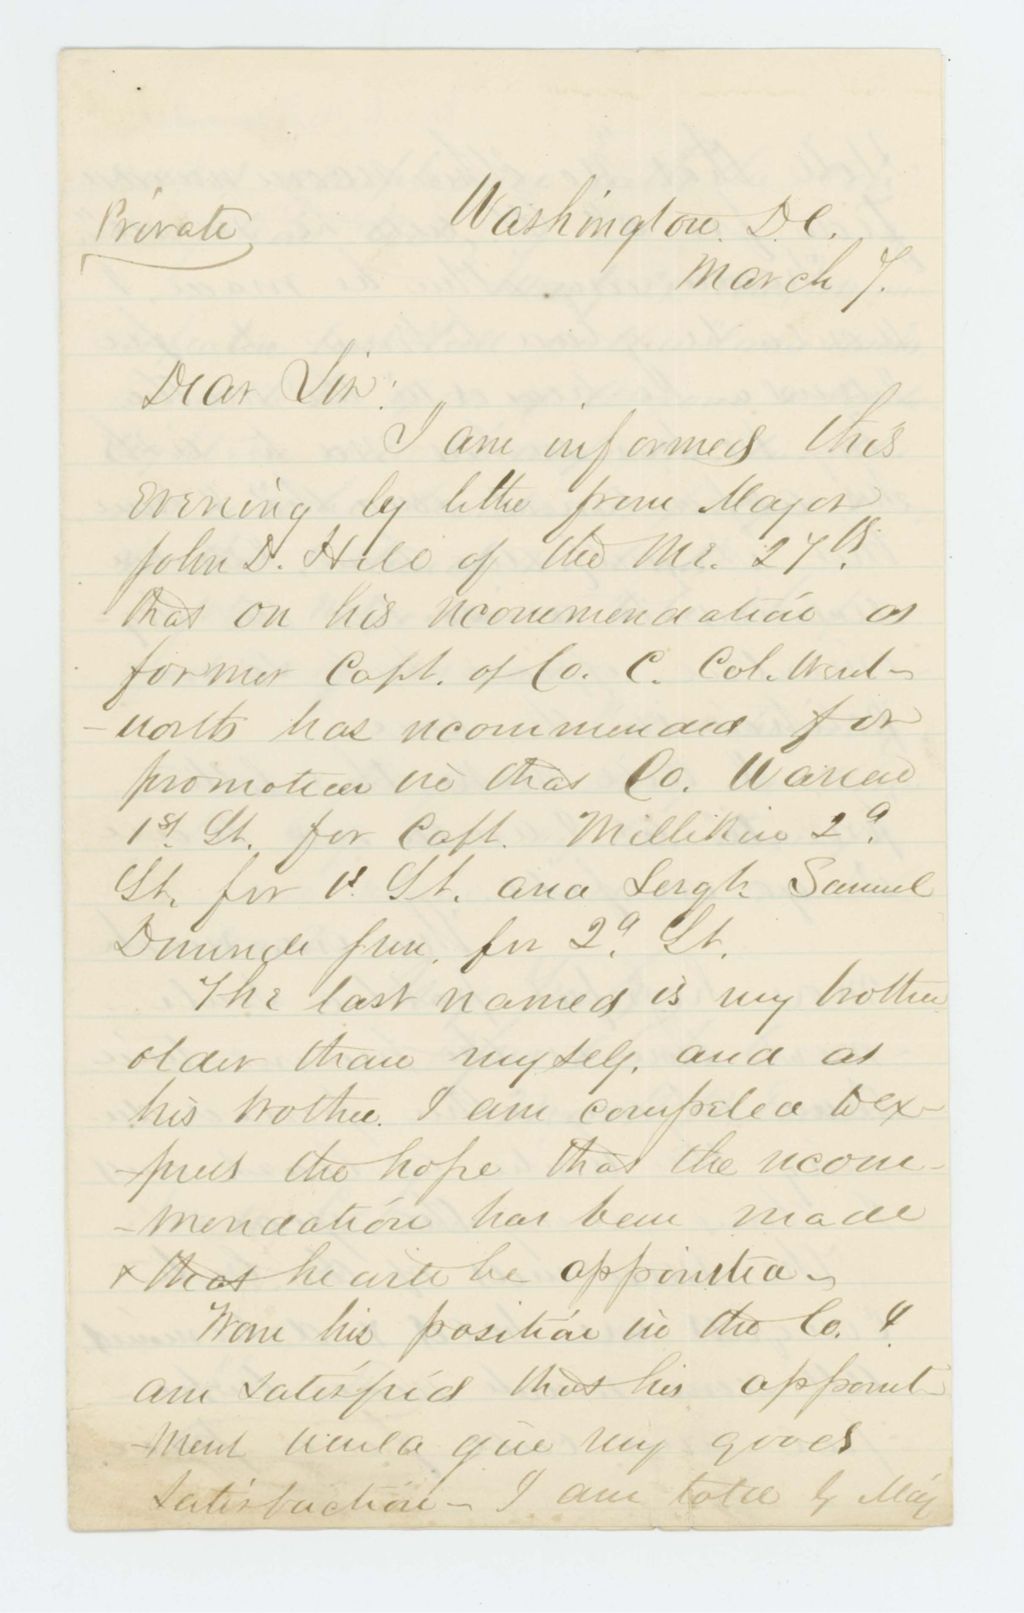 Private
Washington. D.C.
March 7.
Dear Sir:
I am informed this
evening by letter from Major
John D. Hill of the Me. 27th.
that on his recommendation as
former Capt. of Co. C. Col. Went-
-worth has recommended for
promotion in that Co. Warren
1st. Lt. for Capt. Milliken 2d.
Lt. for 1st. Lt. and Sergt. Samuel
jun. for 2d. Lt.
The last named is my brother
older than myself, and as
his brother I am compelled to ex-
-press the hope that the recom-
-mendation has been made
& that he will be appointed -
From his position in the Co. I
am satisfied that his appoint-
-ment would give very good
satisfaction - I am told by Maj